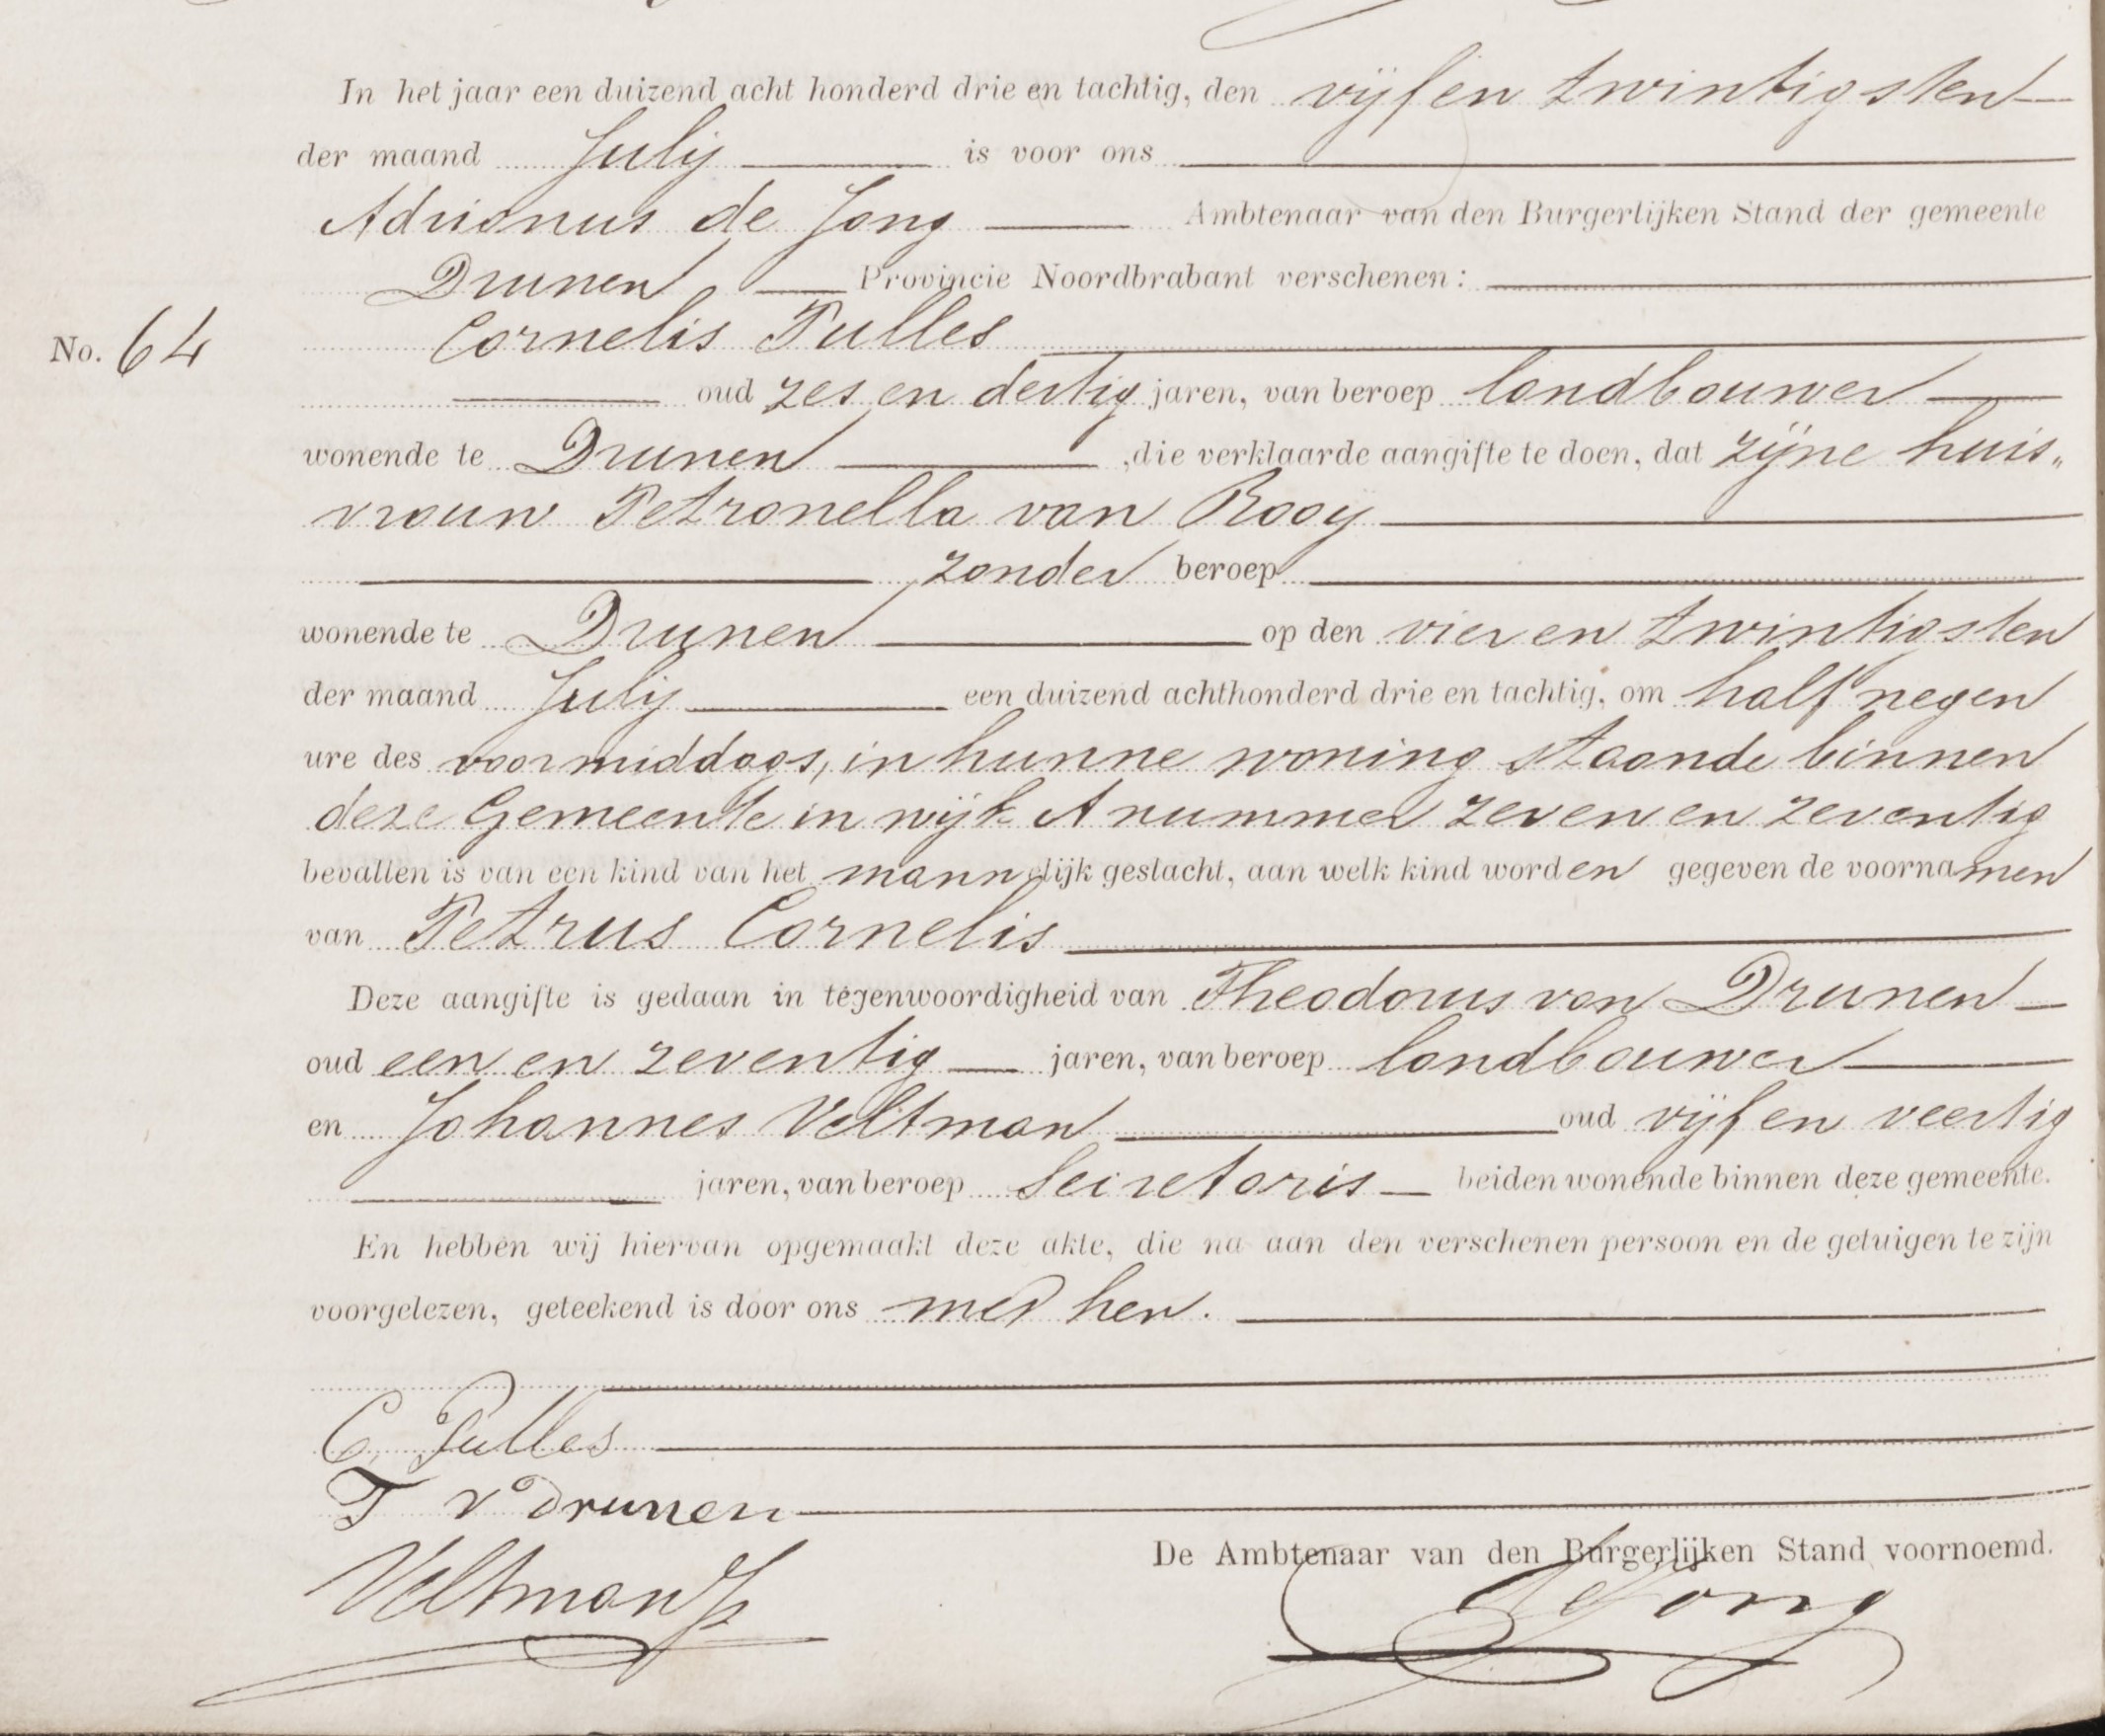 In het jaar een duizend acht honderd drie en tachtig, den vijfen twintigsten
der maand Julij is voor ons
Adrianus de Jong Ambtenaar van den Burgerlijken Stand der gemeente
Drunen Provincie Noordbrabant verschenen:
No. 64
Cornelis Pulles
oud zes en dertig jaren, van beroep landbouwer
wonende te Drunen ,die verklaarde aangifte te doen, dat zijne huis„
vrouw Petronella van Rooij
zonder beroep
wonende te Drunen op den vier en twintigsten
der maand Julij een duizend achthonderd drie en tachtig, om half negen
ure des voormiddags, in hunne woning staande binnen
deze Gemeente in wijk A nummer zeven en zeventig
bevallen is van een kind van het mannelijk geslacht, aan welk kind worden gegeven de voornamen
van Petrus Cornelis
Deze aangifte is gedaan in tegenwoordigheid van Theodorus van Drunen
oud een en zeventig jaren, van beroep landbouwer
en Johannes Veltman oud vijf en veertig
jaren, van beroep Secretaris beiden wonende binnen deze gemeente.
En hebben wij hiervan opgemaakt deze akte, die na aan den verschenen persoon en de getuigen te zijn
voorgelezen, geteekend is door ons met hen.
C. Pulles
T v Drunen
De Ambtenaar van den Burgerlijken Stand voornoemd.
Veltman
de Jong